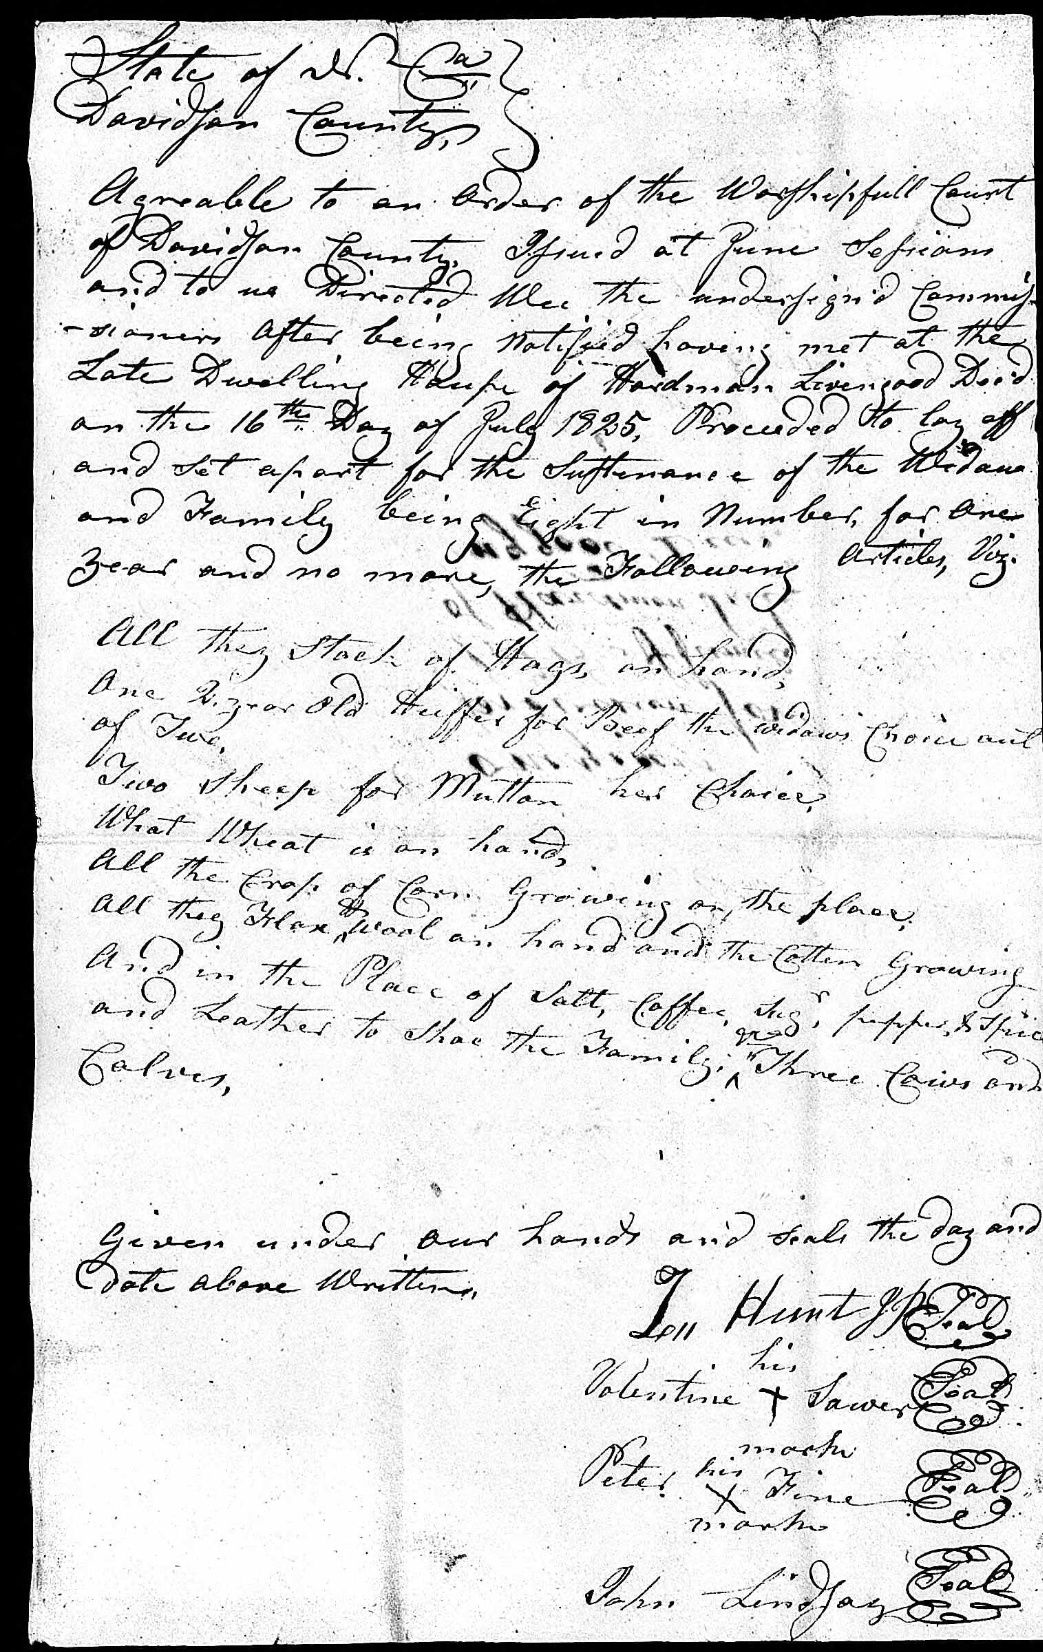 State of N. Ca
Davidson County,
Agreable to an Order of the Worshipfull Court
of Davidson County. Issued at June Sessions
and to us Directed Wee the undersign'd Commis-
-sioners After being Notified having met at the
Late Dwelling House of Hardman Livengood Dec'd
on the 16th Day of July 1825, Proceeded to lay off
and set apart for the Sustenance of the Widow
and Family being Eight in Number, for One
year and no more, the Following Articles, Viz.
All they Stock of Hogs, on hand,
One 2. year Old Heiffer for Beef the widows Choice out
of Two,
Two Sheep for Mutton her Choice,
What Wheat is on hand,
All the Crop of Corn Growing on, the place,
All they Flax, & Wool on hand and the Cotten Growing
And in the Place of Salt, Coffee, Sugr, pepper, & Spice
and Leather to Shoe the Family; Three Cows and
Calves,
Given under our hands and seals the day and
date above Written,
Hunt JP Seal
his
Valentine X Sawer Seal
mark
Peter his Fine Seal
X
mark
John Lindsay Seal